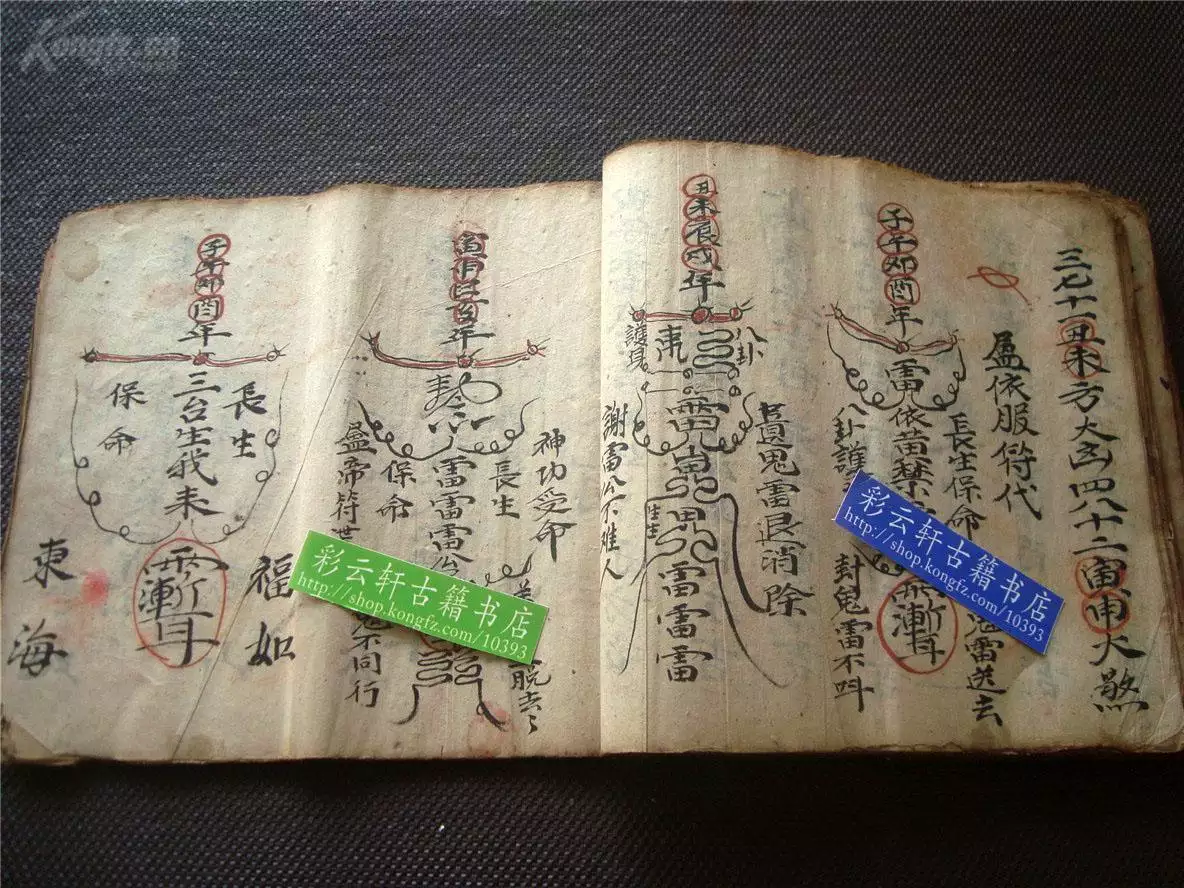 三七十一丑未方大凶四八十二寅申大煞
盈依服符代
子午卯酉年
雷依苗禁
長生保命
鬼雷送去
八卦護
封鬼雷不叫
丑未辰戌年
八卦
護身
鬼雷退消除
雷雷雷
生生
謝雷公不难人
寅申巳亥年
神功受命
長生
保命
雷雷雷公
脱去
盈帝符世
不同行
子午卯酉年
長生
保命
三台生我来
福如
東海
彩云轩古籍书店
http://shop.kongfz.com/10393
彩云轩古籍书店
http://shop.kongfz.com/10393
Kongfz.com